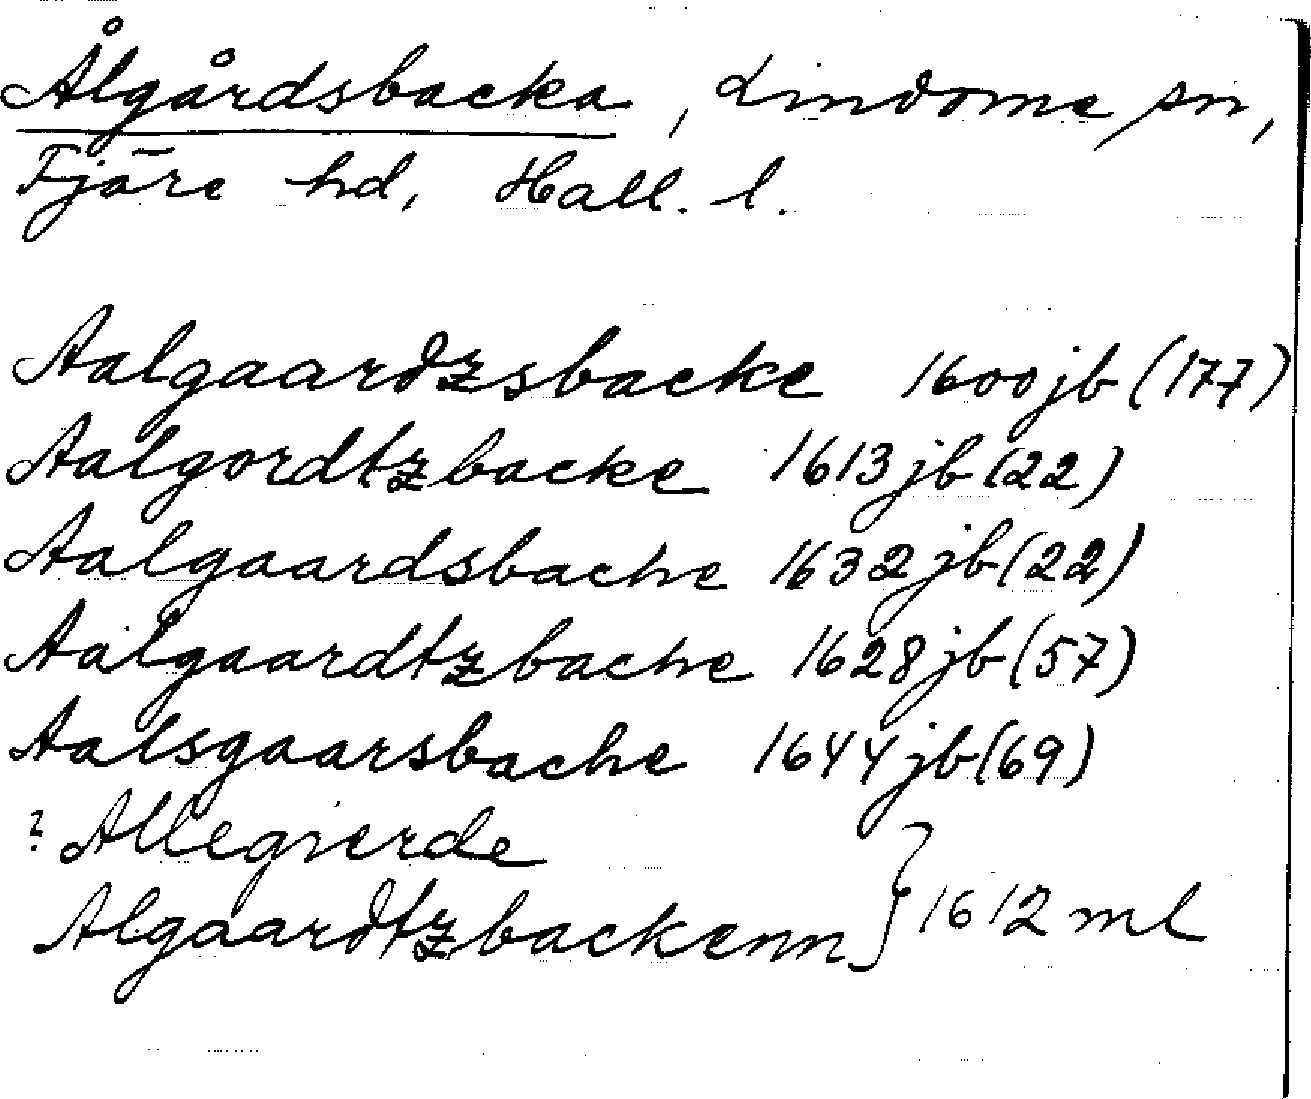 Ålgårdsbacka, Lindome sn,
Fjäre hd, Hall. l.
Aalgaardzsbacke 1600 jb (177)
Aalgordtzbacke 1613 jb (22)
Aalgaardsbache 1632 jb (22)
Aalgaardtzbache 1628 jb (57)
Aalsgaarsbache 1644 jb (69)
? Allegierde
Algaardtzbackenn } 1612 ml